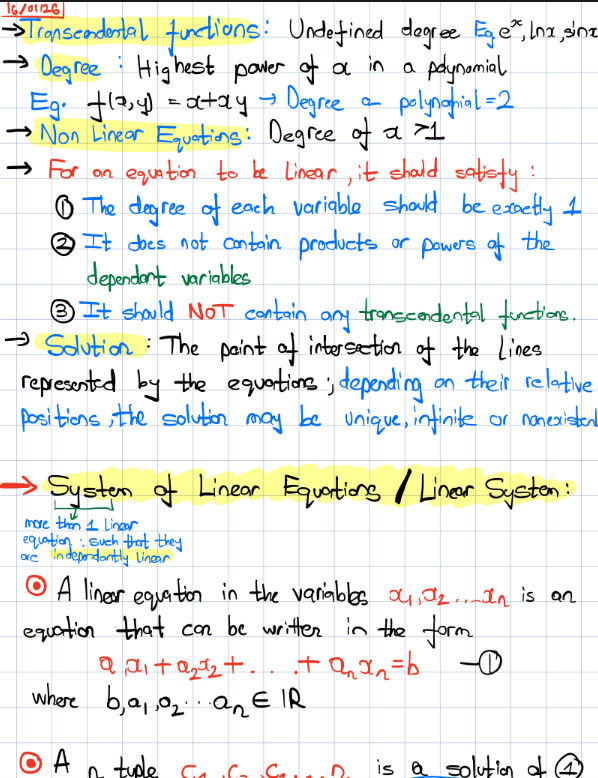 16/01/26
→ Transcendental functions: Undefined degree Eg eˣ, lnx, sinx
→ Degree : Highest power of x in a polynomial
Eg. f(x,y) = x+xy → Degree a polynomial = 2
→ Non Linear Equations: Degree of x >1
→ For an equation to be Linear, it should satisfy :
① The degree of each variable should be exactly 1
② It does not contain products or powers of the
dependant variables
③ It should NOT contain any transcendental functions.
→ Solution : The point of intersection of the Lines
represented by the equations ; depending on their relative
positions, the solution may be unique, infinite or nonexistent
→ System of Linear Equations / Linear System :
more than 1 Linear
equation : such that they
are independantly linear
A linear equation in the variables x₁, x₂ .... xₙ is an
equation that can be written in the form
a₁x₁ + a₂x₂ + . . . . + aₙxₙ = b —①
where b, a₁, a₂ ... aₙ ∈ ℝ
A n tuple is a solution of ①